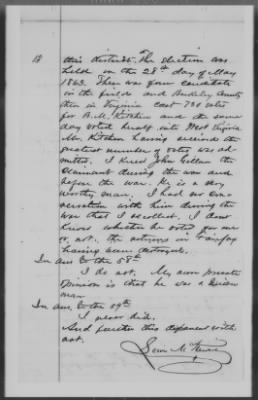 18
this district. The election was
held on the 28th day of May
1863. There was four candidates
in the field and Berkeley County
then in Virginia cast 730 votes
for B.M. Kitchen and the same
day voted herself into West Virginia
Mr. Kitchen having received the
greatest number of votes was ad-
mitted. I knew John
claimant during the war and
before the war. He is a very
worthy man. I had no con-
versation with him during the
war that I recollect. I dont
know whether he voted for me
or not. the returns in
having been destroyed.
In ans to the 58th
I do not. My own private
opinion is that he was a Union
man.
In ans to the 59th
I never did.
And further this deponent saith
not.